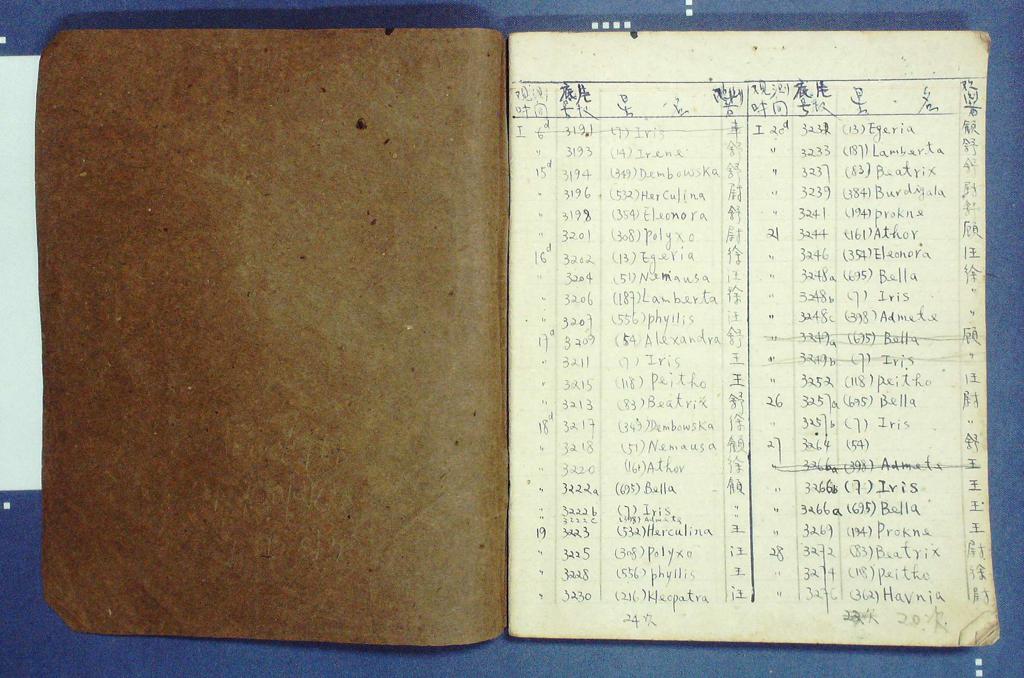 观测时间 底片号数 星名 观测者
I 6d 3191 (7) Iris 王
" 3193 (14) Irene 舒
15d 3194 (349) Dembowska 舒
" 3196 (532) Herculina 尉
" 3198 (354) Eleonora 舒
" 3201 (308) Polyxo 尉
16d 3202 (13) Egeria 徐
" 3204 (51) Nemausa 汪
" 3206 (187) Lamberta 徐
" 3207 (556) phyllis 汪
17d 3209 (54) Alexandra 舒
" 3211 (7) Iris 王
" 3215 (118) Peitho 王
" 3213 (83) Beatrix 舒
18d 3217 (349) Dembowska 徐
" 3218 (51) Nemausa 顾
" 3220 (161) Athor 徐
" 3222a (695) Bella 顾
" 3222b (7) Iris "
" 3222c (398) Admete
19 3223 (532) Herculina 王
" 3225 (308) Polyxo 汪
" 3228 (556) phyllis 王
" 3230 (216) Kleopatra 汪
24次
观测时间 底片号数 星名 观测者
I 20d 3232 (13) Egeria 顾
" 3233 (187) Lamberta 舒
" 3237 (83) Beatrix 舒
" 3239 (384) Burdigala 尉
" 3241 (194) prokne 舒
21 3244 (161) Athor 顾
" 3246 (354) Eleonora 汪
" 3248a (695) Bella 徐
" 3248b (7) Iris "
" 3248c (398) Admete "
" 3249a (695) Bella 顾
" 3249b (7) Iris
" 3252 (118) peitho 汪
26 3257a (695) Bella 尉
" 3257b (7) Iris "
27 3264 (54) 舒
" 3266a (398) Admete 王
3266b (7) Iris 王
3266a (695) Bella 王
" 3269 (194) Prokne 王
28 3272 (83) Beatrix 尉
" 3274 (118) Peitho 徐
" 3276 (362) Havnia 尉
23次 20次